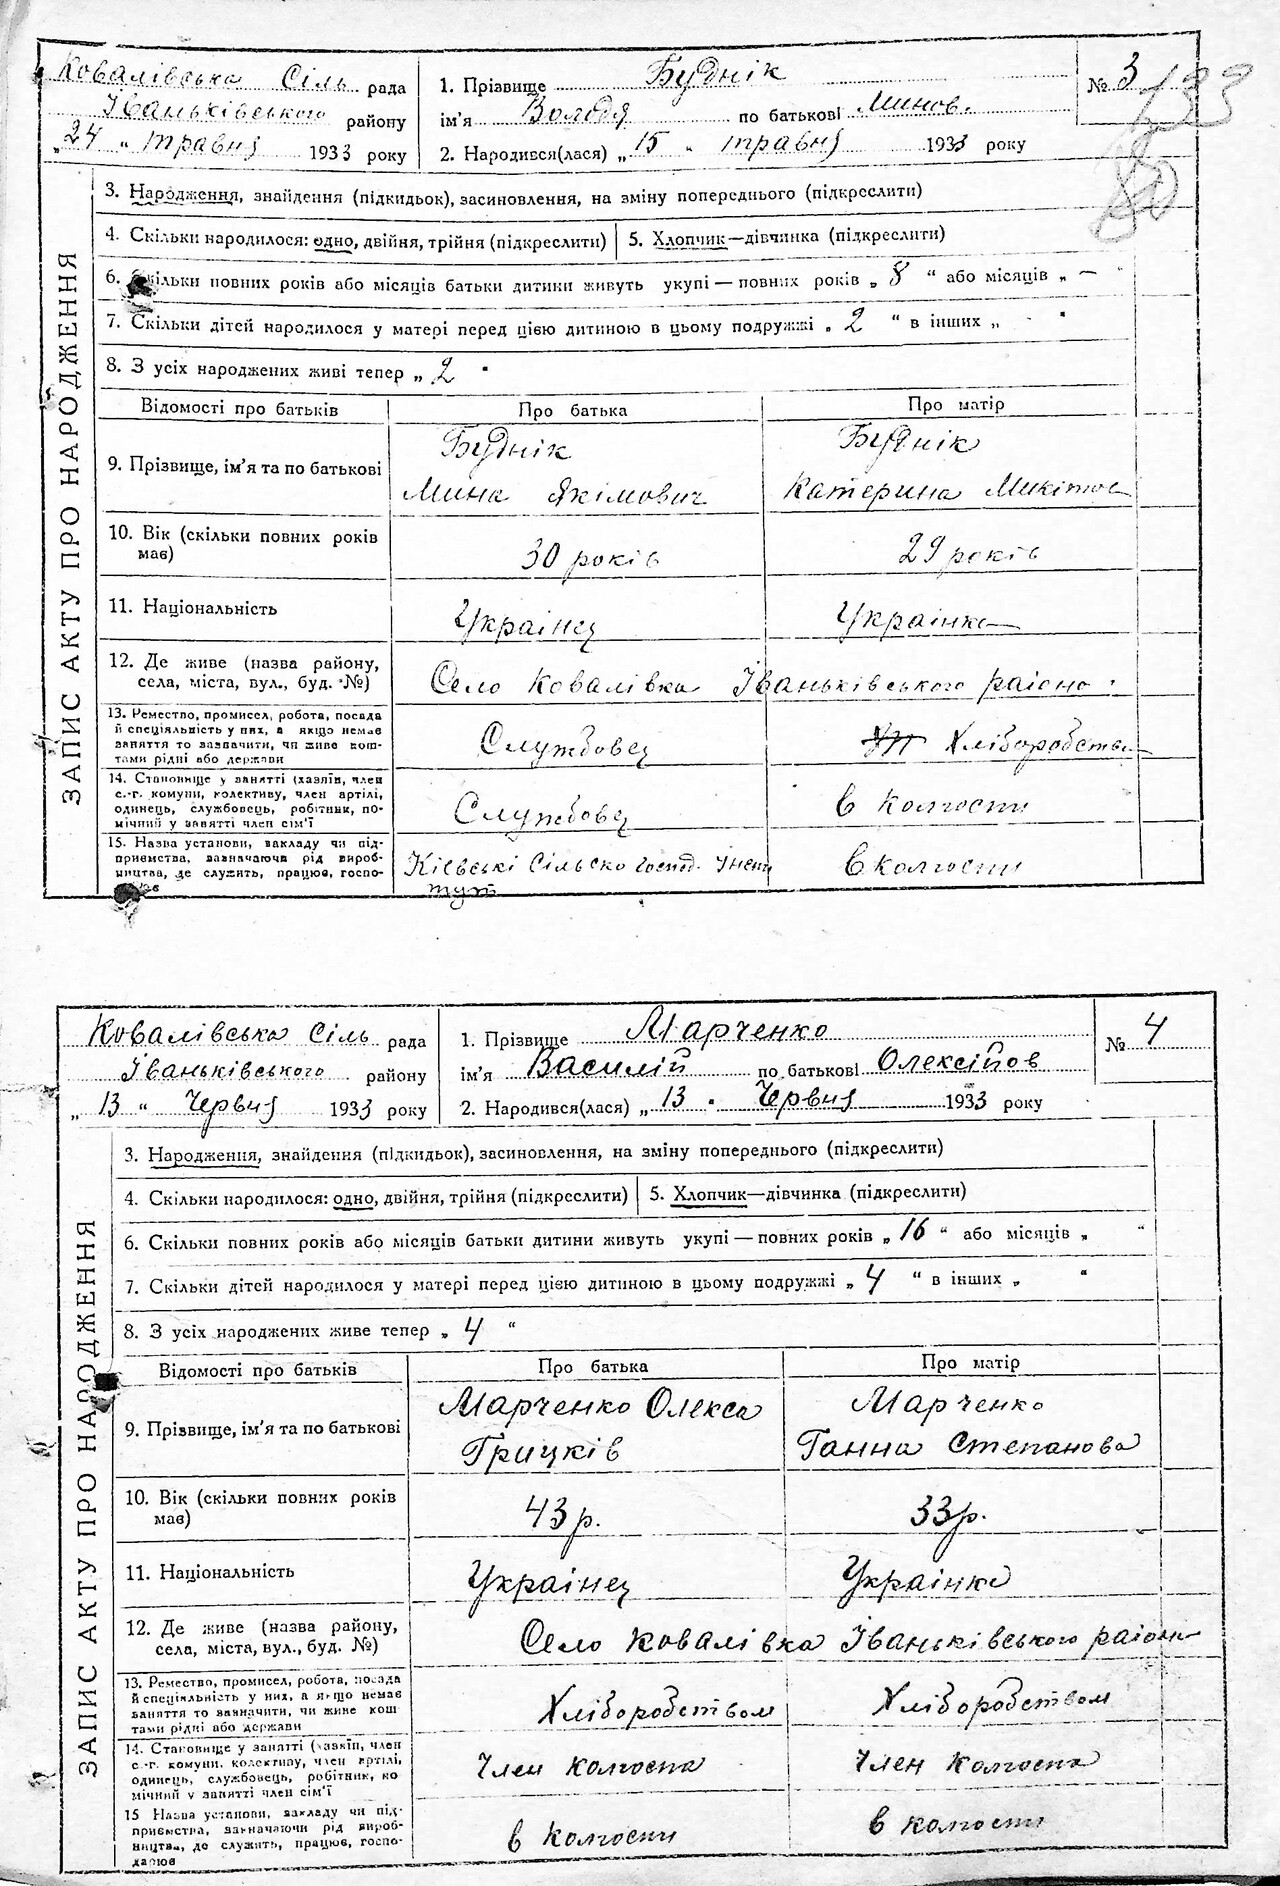 Ковалівська Сіль рада
Іваньківського району
„24 " травня 1933 року
1. Прізвище Буднік
ім'я Володя по батькові Минов.
2. Народився(лася) „15 " травня 1933 року
№ 3
133
3. Народження, знайдення (підкидьок), засиновлення, на зміну попереднього (підкреслити)
4. Скільки народилося: одно, двійня, трійня (підкреслити) 5. Хлопчик—дівчинка (підкреслити)
6. Скільки повних років або місяців батьки дитини живуть укупі — повних років „ 8 " або місяців „ — "
7. Скільки дітей народилося у матері перед цією дитиною в цьому подружжі „ 2 " в інших „ - "
8. З усіх народжених живі тепер „ 2 "
ЗАПИС АКТУ ПРО НАРОДЖЕННЯ
Відомості про батьків Про батька Про матір
9. Прізвище, ім'я та по батькові
Буднік
Мина Якімович
Буднік
Катерина Микітов
10. Вік (скільки повних років
має)
30 років 29 років
11. Національність Украінец Украінка
12. Де живе (назва району,
села, міста, вул., буд. №)
Село Ковалівка Іваньківського раіоно.
13. Ремество, промисел, робота, посада
й спеціяльність у них, а якщо немає
заняття то зазначити, чи живе кош-
тами рідні або держави
Службовец Хліборобством
14. Становище у занятті (хазяїн, член
с.-г. комуни, колективу, член артілі,
одинець, службовець, робітник, по-
мічний у занятті член сім'ї
Службовец в колгоспи
15. Назва установи, закладу чи під-
приємства, зазначаючи рід вироб-
ництва, де служить, працює, госпо-
Кіевські Сільско господ. Інсти
тут
в колгоспи
Ковалівська Сіль рада
Іваньківського району
„ 13 " Червня 1933 року
1. Прізвище Марченко
ім'я Василій по батькові Олексійов
2. Народився(лася) „ 13 " Червня 1933 року
№ 4
3. Народження, знайдення (підкидьок), засиновлення, на зміну попереднього (підкреслити)
4. Скільки народилося: одно, двійня, трійня (підкреслити) 5. Хлопчик—дівчинка (підкреслити)
6. Скільки повних років або місяців батьки дитини живуть укупі — повних років „ 16 " або місяців „ "
7. Скільки дітей народилося у матері перед цією дитиною в цьому подружжі „ 4 " в інших „ "
8. З усіх народжених живе тепер „ 4 "
ЗАПИС АКТУ ПРО НАРОДЖЕННЯ
Відомості про батьків Про батька Про матір
9. Прізвище, ім'я та по батькові
Марченко Олекса
Грицків
Марченко
Ганна Степанова
10. Вік (скільки повних років
має)
43 р. 33 р.
11. Національність Украінец Украінка
12. Де живе (назва району,
села, міста, вул., буд. №)
Село Ковалівка Іваньківського раіони
13. Ремество, промисел, робота, посада
й спеціяльність у них, а якщо немає
заняття то зазначити, чи живе кош
тами рідні або держави
Хліборобством Хліборобством
14. Становище у занятті (хазяїн, член
с.-г. комуни, колективу, член артілі,
одинець, службовець, робітник, по
мічний у занятті член сім'ї
Член колгоспа Член колгоспа
15 Назва установи, закладу чи під-
приємства, зазначаючи рід вироб-
ництва, де служить, працює, госпо-
дарює
в колгоспи в колгоспи